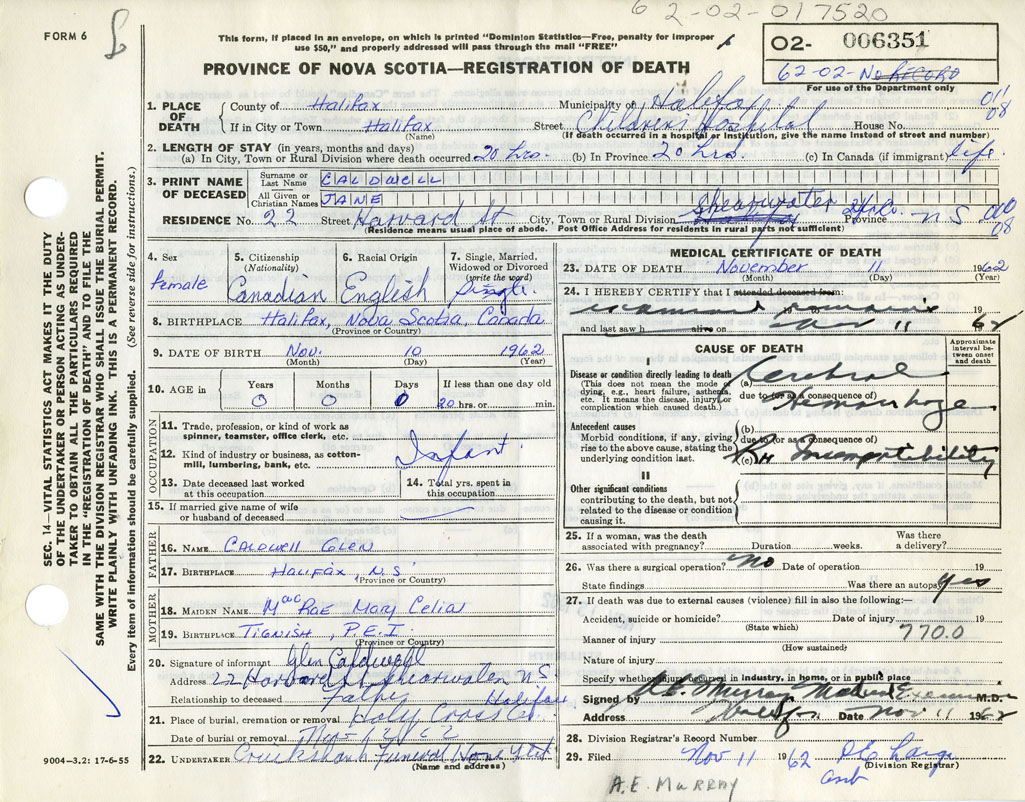 62-02-017520
FORM 6
This form, if placed in an envelope, on which is printed "Dominion Statistics—Free, penalty for improper
use $50," and properly addressed will pass through the mail "FREE"
02- 006351
62-02-No RECORD
For use of the Department only
PROVINCE OF NOVA SCOTIA—REGISTRATION OF DEATH
1. PLACE OF DEATH
County of Halifax Municipality of Halifax
If in City or Town Halifax Street Childrens Hospital House No.
(Name) (If death occurred in a hospital or institution, give the name instead of street and number)
08
2. LENGTH OF STAY (in years, months and days)
(a) In City, Town or Rural Division where death occurred 20 hrs. (b) In Province 20 hrs. (c) In Canada (if immigrant) life
3. PRINT NAME OF DECEASED
Surname or Last Name CALDWELL
All Given or Christian Names JANE
RESIDENCE No. 22 Street Harvard St City, Town or Rural Division Shearwater Province N S
08
(Residence means usual place of abode. Post Office Address for residents in rural parts not sufficient)
4. Sex Female
5. Citizenship (Nationality) Canadian
6. Racial Origin English
7. Single, Married, Widowed or Divorced (write the word) Single
8. BIRTHPLACE Halifax, Nova Scotia, Canada
(Province or Country)
9. DATE OF BIRTH Nov. 10 1962
(Month) (Day) (Year)
10. AGE in Years 0 Months 0 Days 0 If less than one day old 20 hrs. or min.
OCCUPATION
11. Trade, profession, or kind of work as spinner, teamster, office clerk, etc.
12. Kind of industry or business, as cotton-mill, lumbering, bank, etc. Infant
13. Date deceased last worked at this occupation
14. Total yrs. spent in this occupation
15. If married give name of wife or husband of deceased
FATHER
16. NAME CALDWELL GLEN
17. BIRTHPLACE HALIFAX, N.S.
(Province or Country)
MOTHER
18. MAIDEN NAME MacRAE MARY CELIA
19. BIRTHPLACE TIGNISH, P.E.I.
(Province or Country)
20. Signature of informant Glen Caldwell
Address 22 Harvard St Shearwater N S
Relationship to deceased Father Halifax
21. Place of burial, cremation or removal Holy Cross
Date of burial or removal
22. UNDERTAKER Cruikshank Funeral Home
(Name and address)
9004—3.2: 17-6-55
MEDICAL CERTIFICATE OF DEATH
23. DATE OF DEATH November 11 1962
(Month) (Day) (Year)
24. I HEREBY CERTIFY that I attended deceased from:
examined remains 19
and last saw h alive on Nov 11 62
CAUSE OF DEATH
Approximate interval between onset and death
I
Disease or condition directly leading to death
(This does not mean the mode of dying, e.g., heart failure, asthenia, etc. It means the disease, injury, or complication which caused death.)
(a) Cerebral
due to (or as a consequence of)
Hemorrhage
Antecedent causes
Morbid conditions, if any, giving rise to the above cause, stating the underlying condition last.
(b)
due to (or as a consequence of)
(c) RH Incompatibility
II
Other significant conditions
contributing to the death, but not related to the disease or condition causing it.
25. If a woman, was the death associated with pregnancy? Duration weeks. Was there a delivery?
26. Was there a surgical operation? No Date of operation 19
State findings Was there an autopsy? Yes
27. If death was due to external causes (violence) fill in also the following:—
Accident, suicide or homicide? Date of injury 19
(State which)
Manner of injury 770.0
(How sustained)
Nature of injury
Specify whether injury occurred in industry, in home, or in public place
Signed by A.E. Murray Medical Examiner M.D.
Address Halifax Date Nov 11 1962
28. Division Registrar's Record Number
29. Filed Nov 11 1962
(Division Registrar)
A.E. MURRAY
SEC. 14—VITAL STATISTICS ACT MAKES IT THE DUTY
OF THE UNDERTAKER OR PERSON ACTING AS UNDER-
TAKER TO OBTAIN ALL THE PARTICULARS REQUIRED
IN THE "REGISTRATION OF DEATH" AND TO FILE THE
SAME WITH THE DIVISION REGISTRAR WHO SHALL ISSUE THE BURIAL PERMIT.
WRITE PLAINLY WITH UNFADING INK. THIS IS A PERMANENT RECORD.
Every item of information should be carefully supplied. (See reverse side for instructions.)